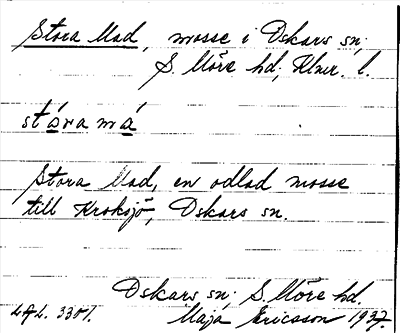 Stora Mad, mosse i Oskars sn;
S. Möre hd; Klmr. l.
stóra má
Stora Mad, en odlad mosse
till Kroksjö, Oskars sn.
Oskars sn; S. Möre hd.
Maja Ericsson 1937.